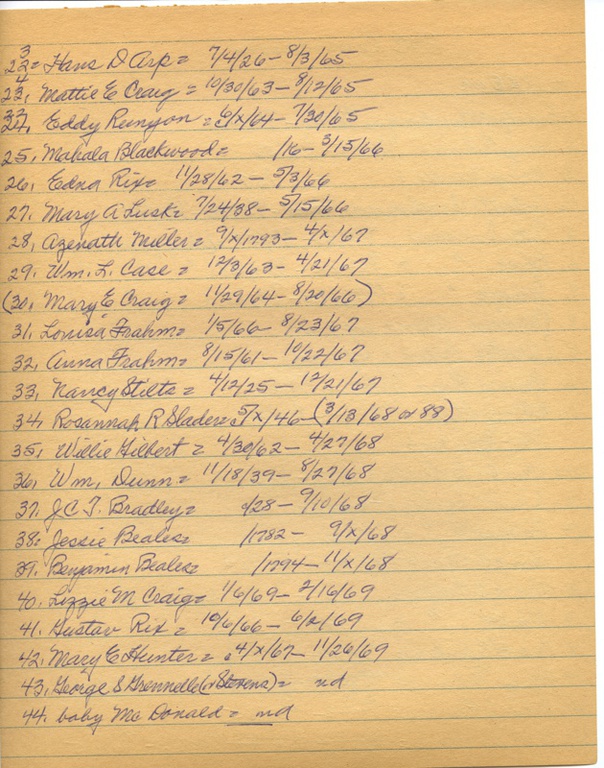 3
22= Hans D Arp = 7/4/26 - 8/3/65
4
23, Mattie E Craig = 10/30/63 - 8/12/65
24, Eddy Runyon = 6/x/64 - 7/30/65
25, Mahala Blackwood = /16 - 3/15/66
26, Edna Rix = 11/28/62 - 5/3/66
27, Mary A Lusk = 7/24/38 - 5/15/66
28, Azenath Miller = 9/x/1793 - 4/x/67
29. Wm. L. Case = 12/3/63 - 4/21/67
(30, Mary E Craig = 11/29/64 - 8/20/66)
31, Louisa Frahm = 1/5/66 - 8/23/67
32, Anna Frahm = 8/15/61 - 10/22/67
33, Nancy Stilts = 4/12/25 - 12/21/67
34, Rosannah R Slader = 5/x/46 - (3/13/68 or 88)
35, Willie Gilbert = 4/30/62 - 4/27/68
36, Wm, Dunn = 11/18/39 - 8/27/68
37, J C T. Bradley = /28 - 9/10/68
38, Jessie Beales = /1782 - 9/x/68
39. Benjamin Beales = /1794 - 11/x/68
40. Lizzie M Craig = 1/6/69 - 2/16/69
41. Gustav Rix = 10/6/66 - 6/x/69
42, Mary E Hunter = 4/x/67 - 11/26/69
43, George S Grennelle (or Stevens) = nd
44. baby Mc Donald = nd